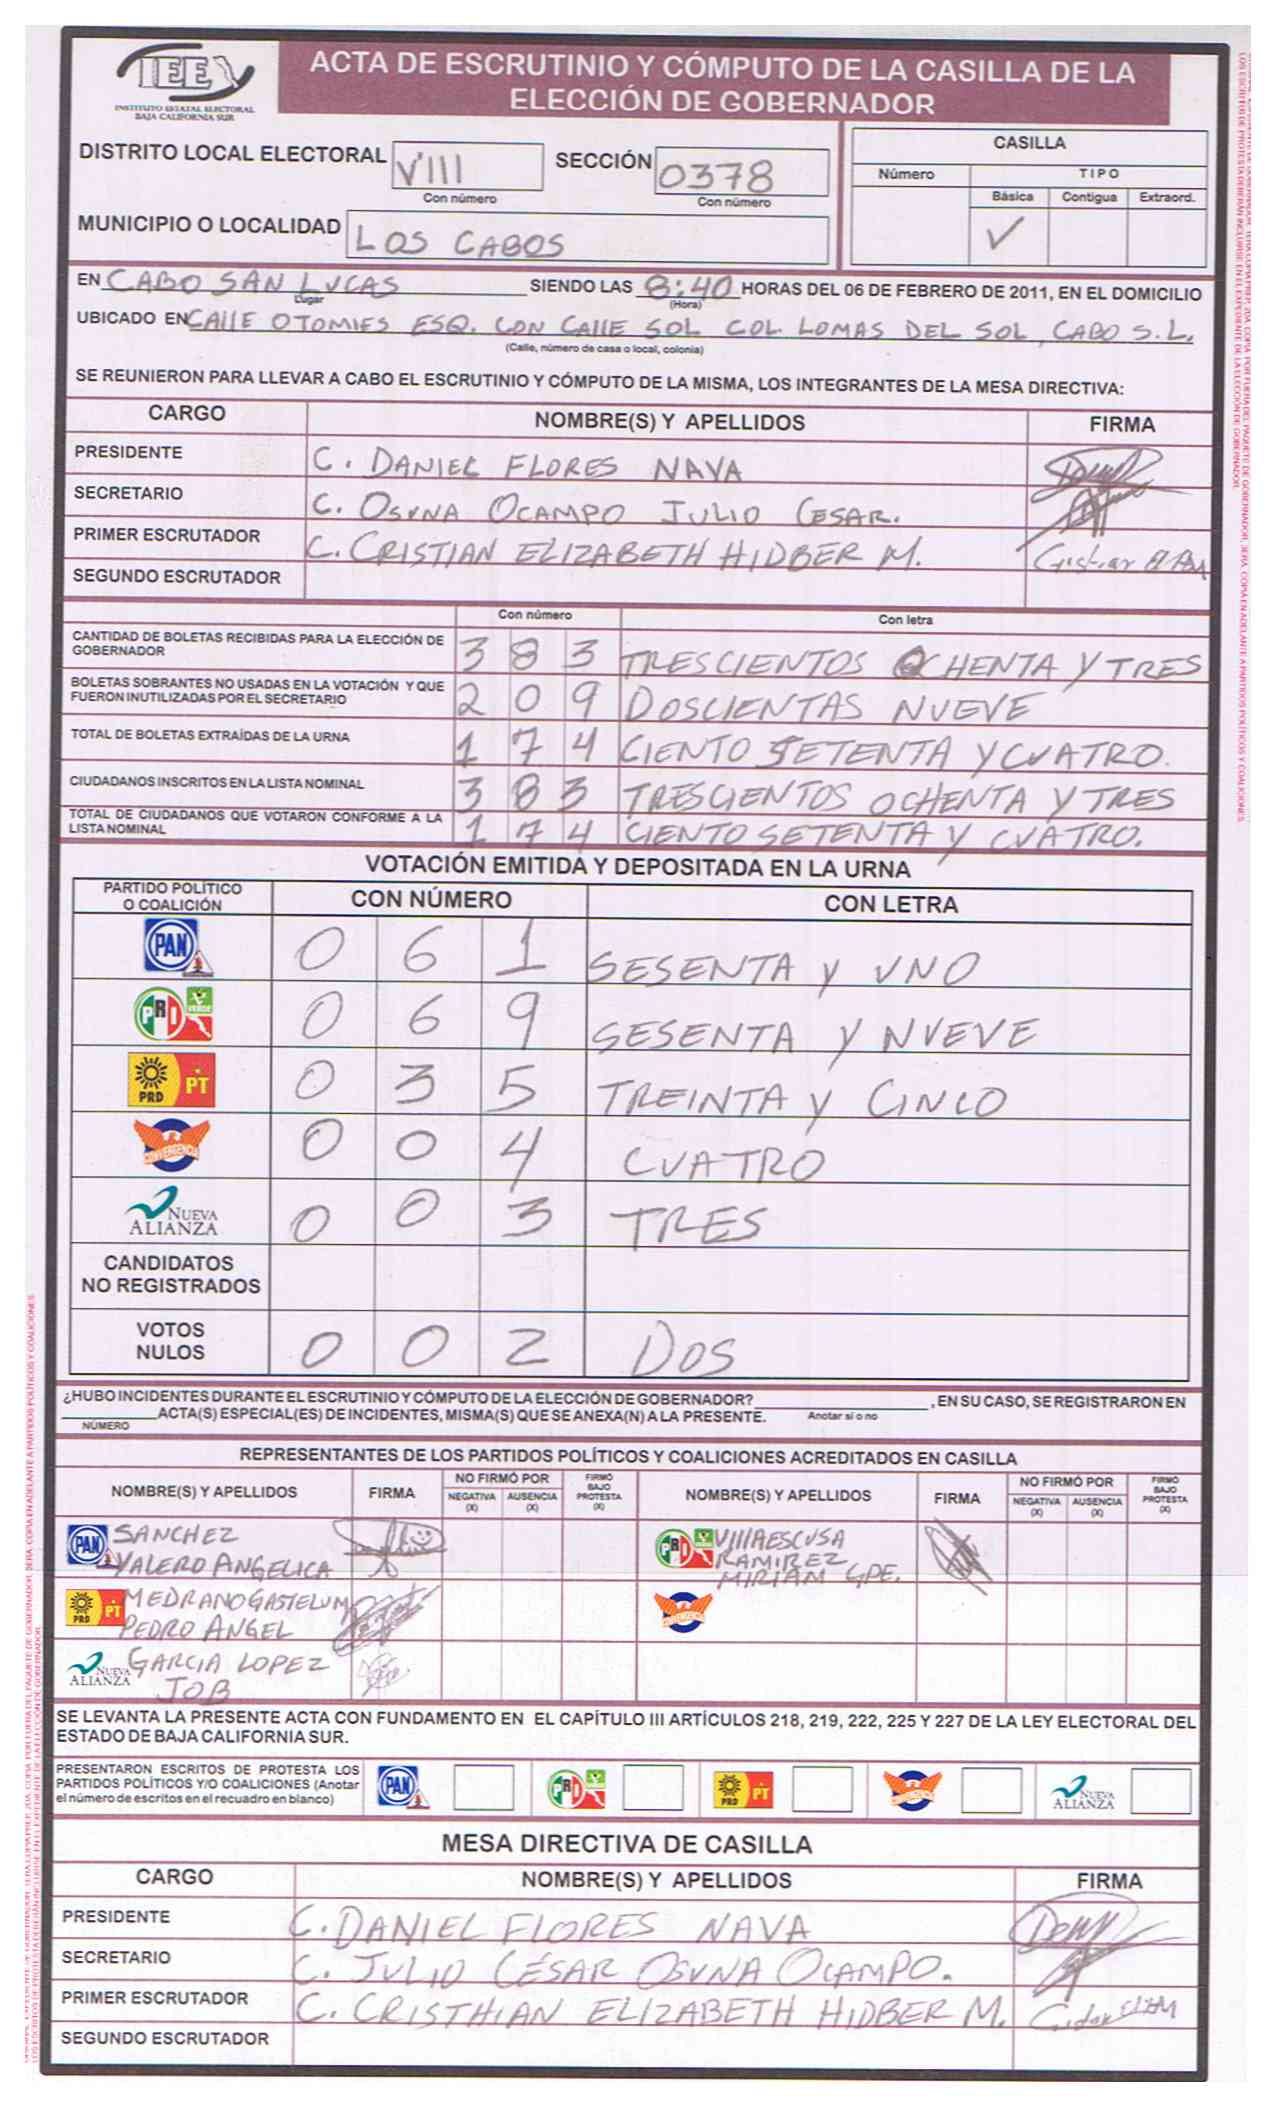 IEE
INSTITUTO ESTATAL ELECTORAL
BAJA CALIFORNIA SUR
ACTA DE ESCRUTINIO Y CÓMPUTO DE LA CASILLA DE LA
ELECCIÓN DE GOBERNADOR
DISTRITO LOCAL ELECTORAL VIII SECCIÓN 0378
Con número Con número
MUNICIPIO O LOCALIDAD LOS CABOS
CASILLA
Número TIPO
Básica Contigua Extraord.
✓
EN CABO SAN LUCAS SIENDO LAS 8:40 HORAS DEL 06 DE FEBRERO DE 2011, EN EL DOMICILIO
Lugar (Hora)
UBICADO EN CALLE OTOMIES ESQ. CON CALLE SOL COL. LOMAS DEL SOL, CABO S.L.
(Calle, número de casa o local, colonia)
SE REUNIERON PARA LLEVAR A CABO EL ESCRUTINIO Y CÓMPUTO DE LA MISMA, LOS INTEGRANTES DE LA MESA DIRECTIVA:
CARGO NOMBRE(S) Y APELLIDOS FIRMA
PRESIDENTE C. DANIEL FLORES NAVA
SECRETARIO C. OSUNA OCAMPO JULIO CESAR.
PRIMER ESCRUTADOR C. CRISTIAN ELIZABETH HIDBER M.
SEGUNDO ESCRUTADOR
Con número Con letra
CANTIDAD DE BOLETAS RECIBIDAS PARA LA ELECCIÓN DE
GOBERNADOR 3 8 3 TRESCIENTOS OCHENTA Y TRES
BOLETAS SOBRANTES NO USADAS EN LA VOTACIÓN Y QUE
FUERON INUTILIZADAS POR EL SECRETARIO 2 0 9 DOSCIENTAS NUEVE
TOTAL DE BOLETAS EXTRAÍDAS DE LA URNA 1 7 4 CIENTO SETENTA Y CUATRO.
CIUDADANOS INSCRITOS EN LA LISTA NOMINAL 3 8 3 TRESCIENTOS OCHENTA Y TRES
TOTAL DE CIUDADANOS QUE VOTARON CONFORME A LA
LISTA NOMINAL 1 7 4 CIENTO SETENTA Y CUATRO.
VOTACIÓN EMITIDA Y DEPOSITADA EN LA URNA
PARTIDO POLÍTICO
O COALICIÓN CON NÚMERO CON LETRA
PAN 0 6 1 SESENTA Y UNO
PRI VERDE 0 6 9 SESENTA Y NUEVE
PRD PT 0 3 5 TREINTA Y CINCO
CONVERGENCIA 0 0 4 CUATRO
NUEVA
ALIANZA 0 0 3 TRES
CANDIDATOS
NO REGISTRADOS
VOTOS
NULOS 0 0 2 DOS
¿HUBO INCIDENTES DURANTE EL ESCRUTINIO Y CÓMPUTO DE LA ELECCIÓN DE GOBERNADOR? , EN SU CASO, SE REGISTRARON EN
ACTA(S) ESPECIAL(ES) DE INCIDENTES, MISMA(S) QUE SE ANEXA(N) A LA PRESENTE. Anotar sí o no
NÚMERO
REPRESENTANTES DE LOS PARTIDOS POLÍTICOS Y COALICIONES ACREDITADOS EN CASILLA
NOMBRE(S) Y APELLIDOS FIRMA NO FIRMÓ POR NEGATIVA (X) AUSENCIA (X) FIRMÓ BAJO PROTESTA (X) NOMBRE(S) Y APELLIDOS FIRMA NO FIRMÓ POR NEGATIVA (X) AUSENCIA (X) FIRMÓ BAJO PROTESTA (X)
PAN SANCHEZ
VALERO ANGELICA
PRI VILLAESCUSA
RAMIREZ
MIRIAM GPE.
PRD PT MEDRANO GASTELUM
PEDRO ANGEL
CONVERGENCIA
NUEVA ALIANZA GARCIA LOPEZ
JOB
SE LEVANTA LA PRESENTE ACTA CON FUNDAMENTO EN EL CAPÍTULO III ARTÍCULOS 218, 219, 222, 225 Y 227 DE LA LEY ELECTORAL DEL
ESTADO DE BAJA CALIFORNIA SUR.
PRESENTARON ESCRITOS DE PROTESTA LOS
PARTIDOS POLÍTICOS Y/O COALICIONES (Anotar
el número de escritos en el recuadro en blanco)
PAN PRI PRD PT CONVERGENCIA NUEVA ALIANZA
MESA DIRECTIVA DE CASILLA
CARGO NOMBRE(S) Y APELLIDOS FIRMA
PRESIDENTE C. DANIEL FLORES NAVA
SECRETARIO C. JULIO CÉSAR OSUNA OCAMPO.
PRIMER ESCRUTADOR C. CRISTHIAN ELIZABETH HIDBER M.
SEGUNDO ESCRUTADOR